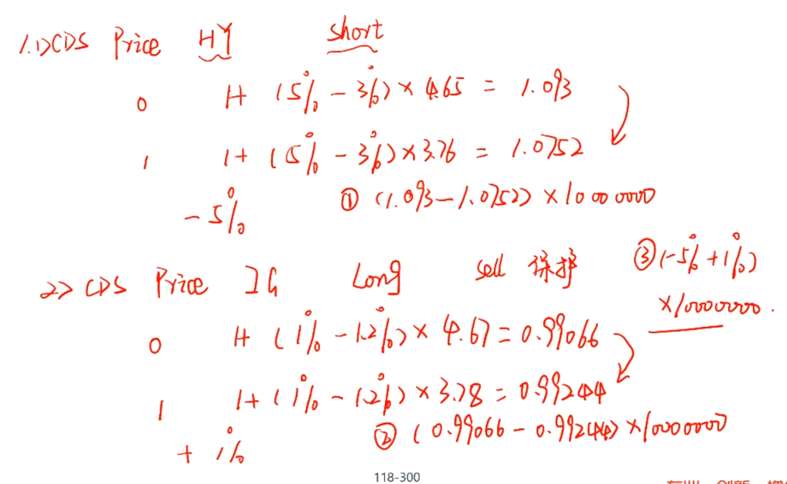 1.1>CDS Price HY short
0 1+(5%-3%)×4.65=1.093
1 1+(5%-3%)×3.76=1.0752
-5% ①(1.093-1.0752)×10000000
2>CDS Price IG Long sell 保护 ③(-5%+1%)
×10000000.
0 1+(1%-1.2%)×4.67=0.99066
1 1+(1%-1.2%)×3.78=0.99244
+1% ②(0.99066-0.99244)×10000000
118-300